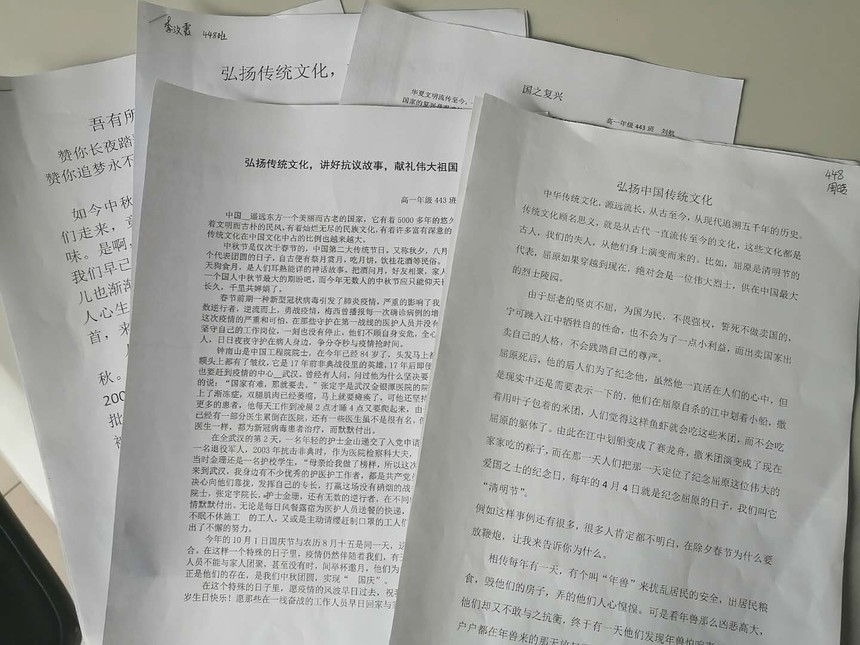 李汝霞 448班
弘扬传统文化，
国之复兴
高一年级 443 班 刘航
华夏文明流传至今，
吾有所
赞你长夜踏
赞你追梦永不
如今中秋
们走来，
味。是啊，
我们早已
儿也渐
人心生
首，来
秋。
200
批
弘扬传统文化，讲好抗议故事，献礼伟大祖国
高一年级 443 班
中国__遥远东方一个美丽而古老的国家，它有着 5000 多年的悠久
着文明而古朴的民风，有着灿烂无尽的民族文化，有着许多富有深意的
传统文化在中国文化中占的比例也越来越大。
中秋节是仅次于春节的，中国第二大传统节日，又称秋夕，八月
个代表团圆的日子，自古便有祭月赏月，吃月饼，饮桂花酒等民俗，
天狗食月，是人们耳熟能详的神话故事。把酒问月，好友相聚，家人
一个国人中秋节最大的期盼吧，而今年无数人的中秋节应只能仰天
长久，千里共婵娟了。
春节前期一种新型冠状病毒引发了肺炎疫情，严重的影响了我
数逆行者，逆流而上，勇战疫情，梅西曾播报每一次确诊病例的增
这次疫情的严重和可怕，在那些守护在第一战线的医护人员并没有
坚守自己的工作岗位，一刻也没有停止，他们不顾自身安危，全心
人，日日夜夜守护在病人身边，争分夺秒与疫情抢时间。
钟南山是中国工程院院士，在今年已经 84 岁了，头发马上
额头上都有了皱纹，它是 17 年前非典战役里的英雄，17 年后即使
也要赶到疫情的中心__武汉，曾经有人问，问过他为什么坚决要
的说：“国家有难，那就要去。”张定宇是武汉金银潭医院的院
上了渐冻症，双腿肌肉已经萎缩，马上就要瘫痪了，可他还坚持
更多的患者，他每天工作到凌晨 2 点才睡 4 点又要爬起来，由
已经有一部分医生累倒在医院，还有一些医生虽不是很有名，但
医生一样，都为新冠病毒患者治疗，而默默付出。
在全武汉的第 2 天，一名年轻的护士金山递交了入党申请
一名退役军人，2003 年抗击非典时，作为医院检察科大夫，
当时金珊还是一名护校学生，“母亲给我做了榜样，所以这次
来到武汉，我身边有不少优秀的医护工作者，都是共产党员
决心向他们靠拢，发挥自己的专长，打赢这场没有硝烟的战
院士，张定宇院长，护士金珊，还有无数的逆行者，在不同
情默默付出。无论是每日风餐露宿为医护人员送餐的快递，
不眠不休施工 的工人，又或是主动请缨赶制口罩的工人们
出了不懈的努力。
今年的 10 月 1 日国庆节与农历 8 月十五是同一天，
合，在这样一个特殊的日子里，疫情仍然伴随着我们，有
人员不能与家人团聚，甚至没有时，间举杯邀月，他们为
正是他们的存在，是我们中秋团圆，实现“ 国庆”。
在这个特殊的日子里，愿疫情的风波早日过去，祝
岁生日快乐！愿那些在一线奋战的工作人员早日回家与
448
周晓
弘扬中国传统文化
中华传统文化，源远流长，从古至今，从现代追溯五千年的历史。
传统文化顾名思义，就是从古代一直流传至今的文化，这些文化都是
古人，我们的失人，从他们身上演变而来的。比如，屈原是清明节的
代表，屈原如果穿越到现在，绝对会是一位伟大烈士，供在中国最大
的烈士陵园。
由于屈老的坚贞不屈，为国为民，不畏强权，誓死不做卖国的，
宁可跳入江中牺牲自的性命，也不会为了一点小利益，而出卖国家出
卖自己的人格，不会践踏自己的尊严。
屈原死后，他的后人们为了纪念他，虽然他一直活在人们的心中，但
是现实中还是需要表示一下的，他们在屈原自杀的江中划着小船，撒
着用叶子包着的米团，人们觉得这样鱼虾就会吃这些米团，而不会吃
屈原的躯体了。由此在江中划船变成了赛龙舟，撒米团演变成了现在
家家吃的粽子，而在那一天人们把那一天定位了纪念屈原这位伟大的
爱国之士的纪念日，每年的 4 月 4 日就是纪念屈原的日子，我们叫它
“清明节”。
例如这样事例还有很多，很多人肯定都不明白，在除夕春节为什么要
放鞭炮，让我来告诉你为什么。
相传每年有一天，有个叫“年兽”来扰乱居民的安全，出居民粮
食，毁他们的房子，弄的他们人心惶惶。可是看年兽那么凶恶高大，
他们却又不敢与之抗衡，终于有一天他们发现年兽怕响
户户都在年兽来的那天放